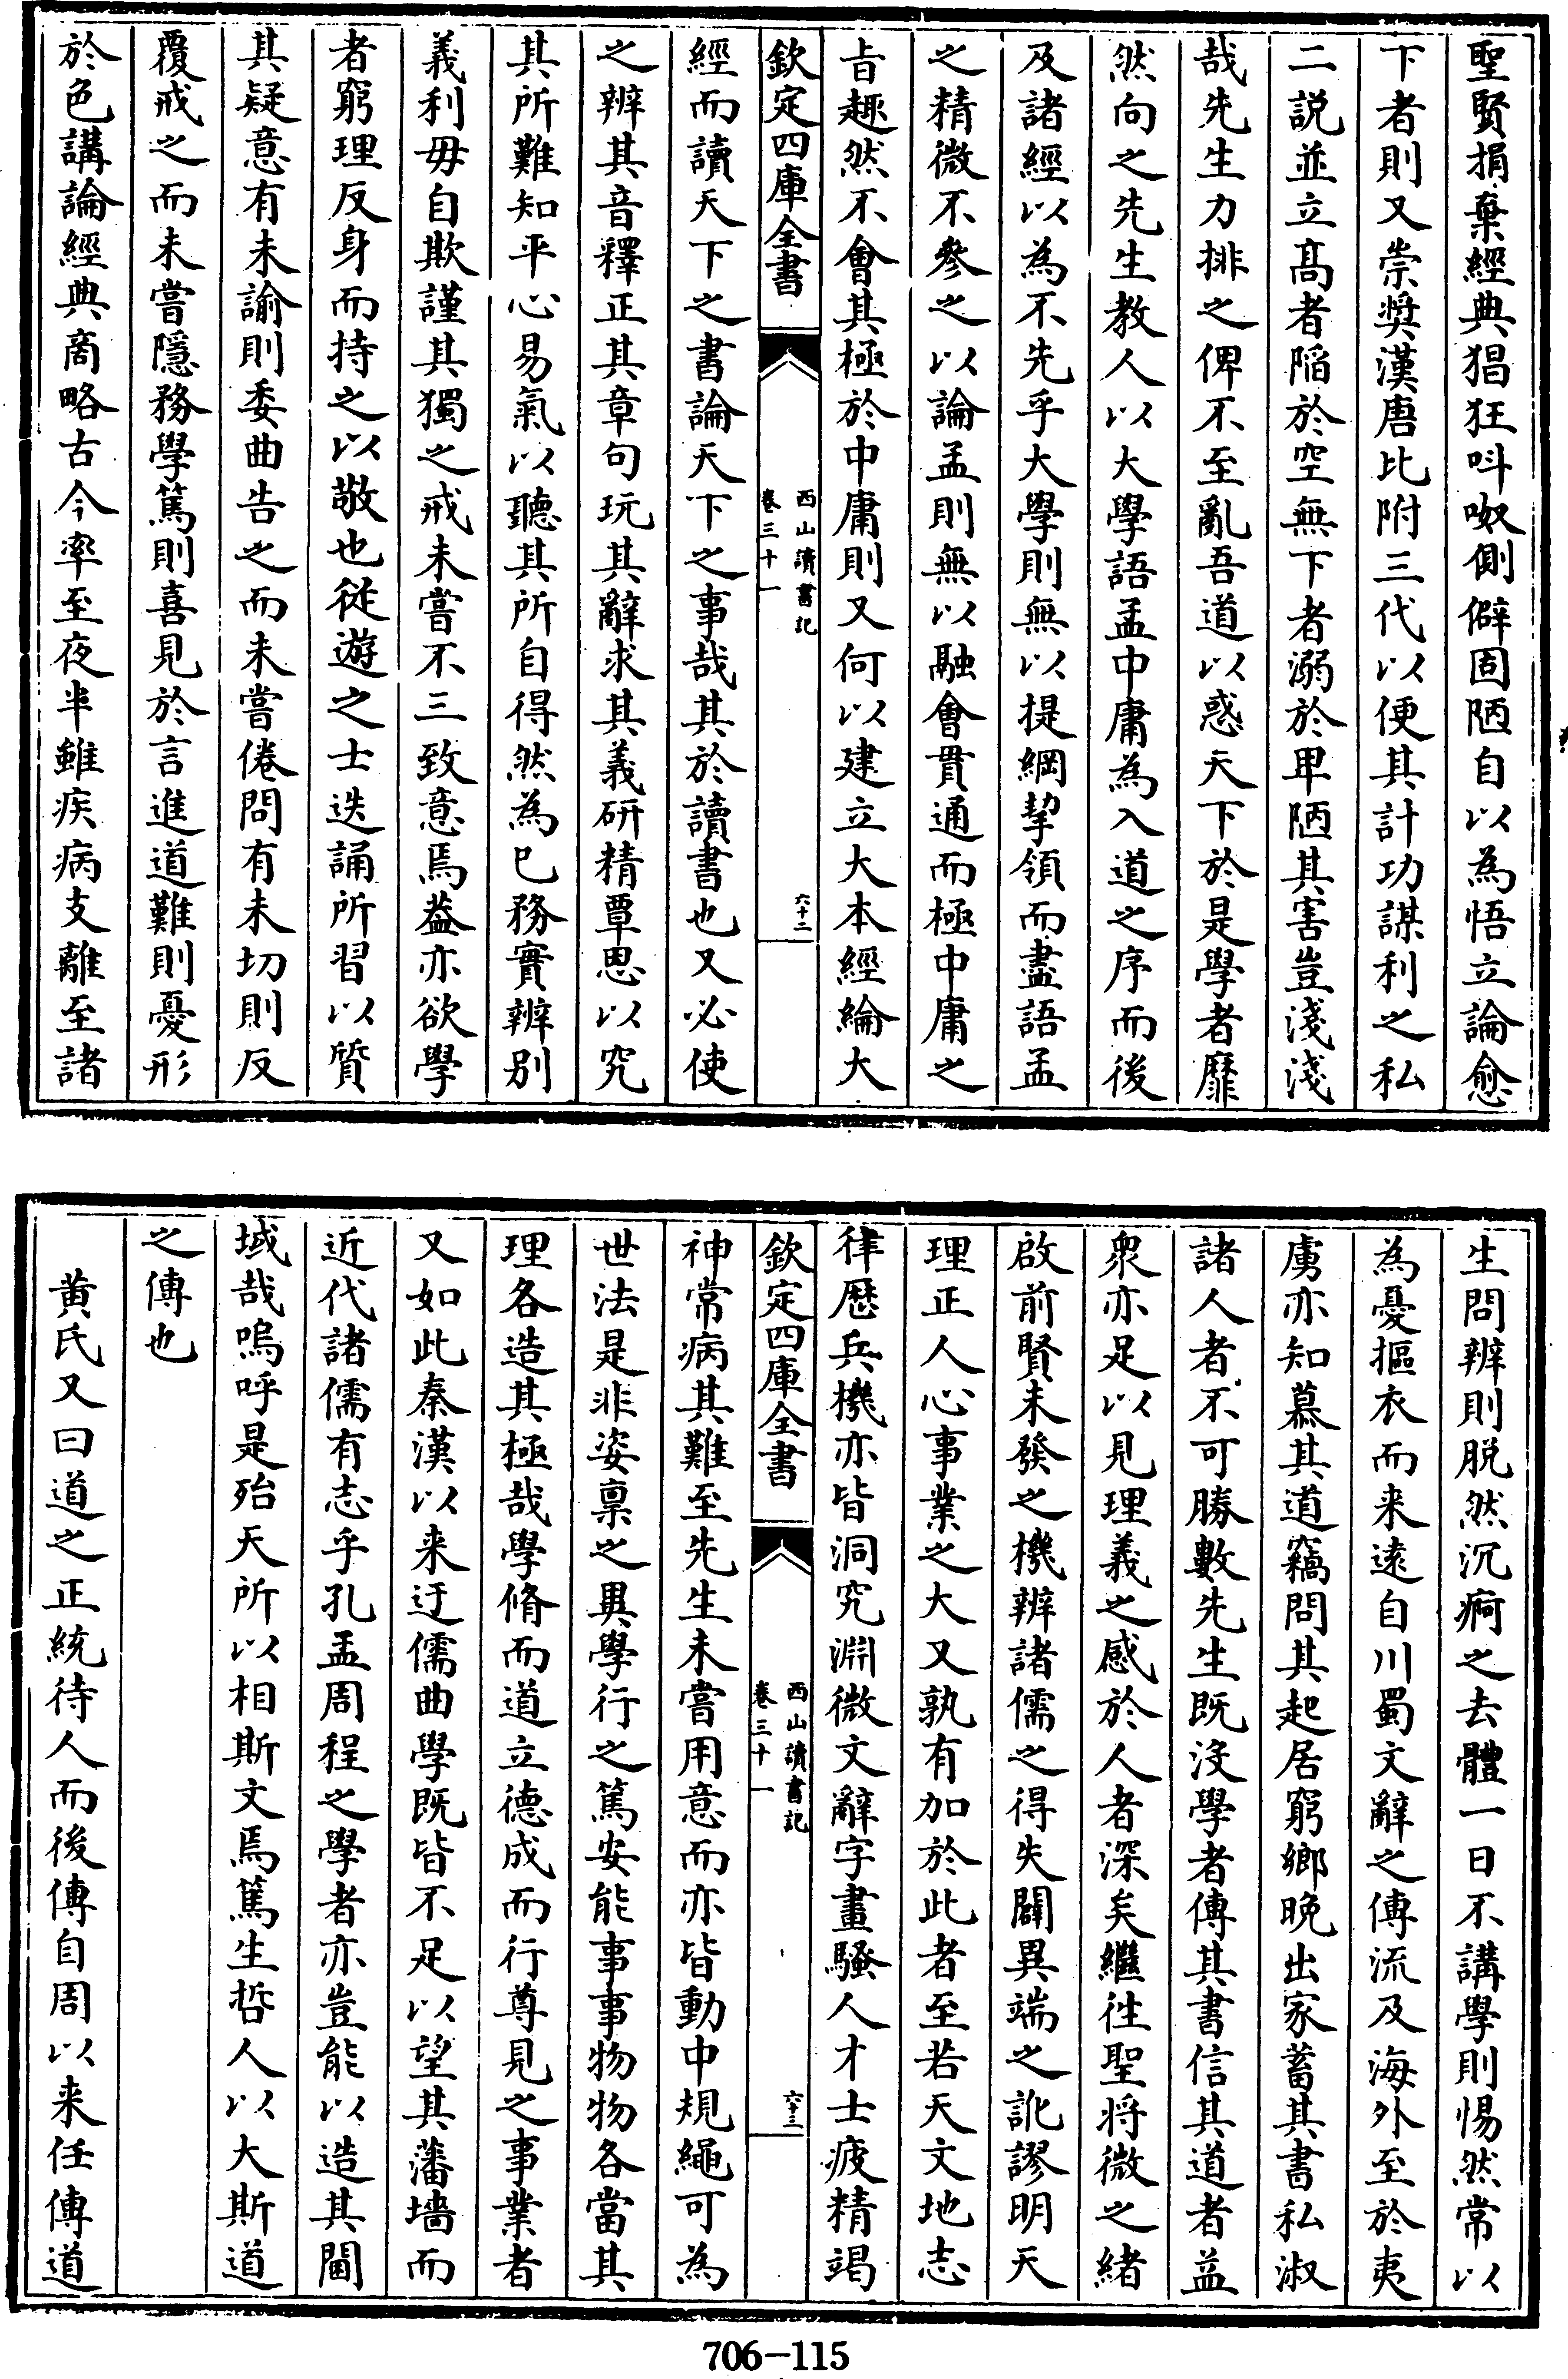 聖賢捐棄經典猖狂呌呶側僻固陋自以為悟立論愈
下者則又崇奨漢唐比附三代以便其計功謀利之私
二説並立髙者陷於空無下者溺於卑陋其害豈淺淺
哉先生力排之俾不至亂吾道以惑天下於是學者靡
然向之先生教人以大學語孟中庸為入道之序而後
及諸經以為不先乎大學則無以提綱挈領而盡語孟
之精微不參之以論孟則無以融會貫通而極中庸之
旨趣然不會其極於中庸則又何以建立大本經綸大
欽定四庫全書
西山讀書記
卷三十一
六十二
經而讀天下之書論天下之事哉其於讀書也又必使
之辨其音釋正其章句玩其辭求其義研精覃思以究
其所難知平心易氣以聽其所自得然為已務實辨别
義利毋自欺謹其獨之戒未嘗不三致意焉葢亦欲學
者窮理反身而持之以敬也從遊之士迭誦所習以質
其疑意有未諭則委曲告之而未嘗倦問有未切則反
覆戒之而未嘗隱務學篤則喜見於言進道難則憂形
於色講論經典商略古今率至夜半雖疾病支離至諸
生問辨則脱然沉痾之去體一日不講學則惕然常以
為憂摳衣而来逺自川蜀文辭之傳流及海外至於夷
虜亦知慕其道竊問其起居窮鄉晚出家蓄其書私淑
諸人者不可勝數先生既沒學者傳其書信其道者益
衆亦足以見理義之感於人者深矣繼徃聖將微之緒
啟前賢未發之機辨諸儒之得失闢異端之訛謬明天
理正人心事業之大又孰有加於此者至若天文地志
律厯兵機亦皆洞究淵微文辭字畫騷人才士疲精竭
欽定四庫全書
西山讀書記
卷三十一
六十三
神常病其難至先生未嘗用意而亦皆動中規繩可為
世法是非姿禀之異學行之篤安能事事物物各當其
理各造其極哉學脩而道立德成而行尊見之事業者
又如此秦漢以来迂儒曲學既皆不足以望其藩墻而
近代諸儒有志乎孔孟周程之學者亦豈能以造其閫
域哉嗚呼是殆天所以相斯文焉篤生哲人以大斯道
之傳也
黄氏又曰道之正統待人而後傳自周以来任傳道
706-115